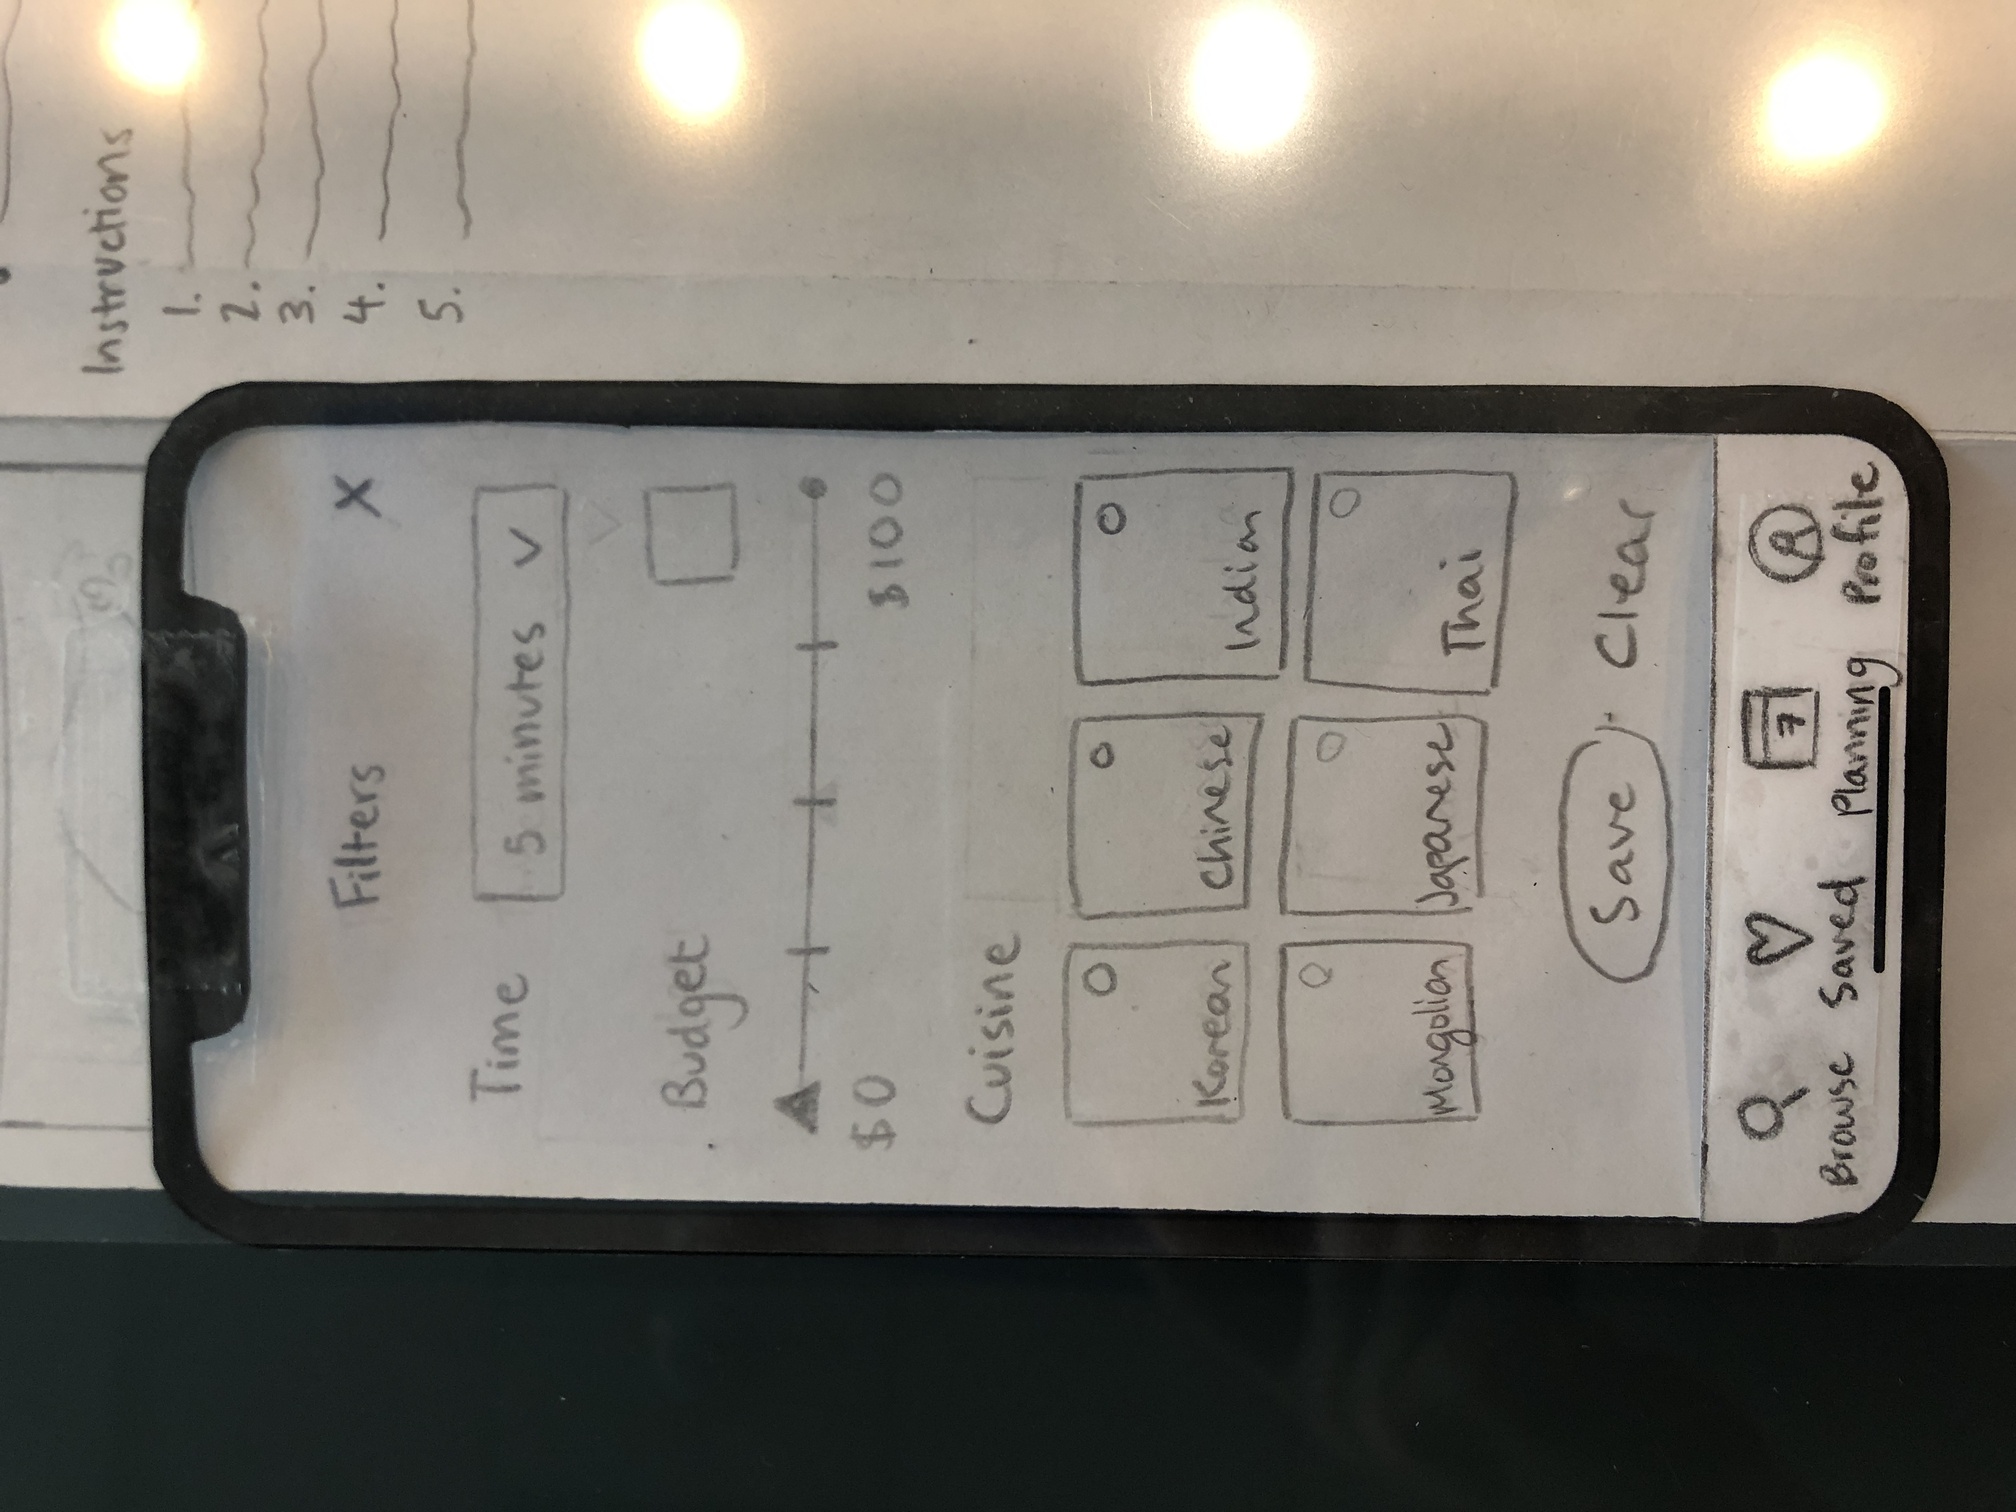 Filters X
Time 5 minutes
Budget
$0 $100
Cuisine
Korean Chinese Indian
Mongolian Japanese Thai
Save Clear
7
Browse Saved Planning Profile
Instructions
1.
2.
3.
4.
5.